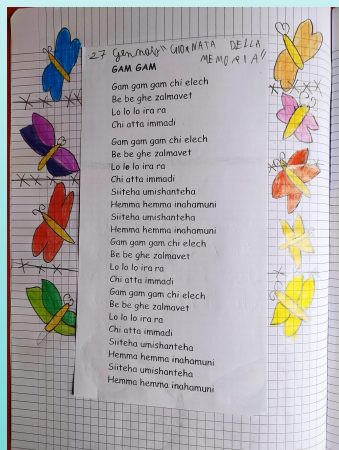 27 Gennaio "GIORNATA DELLA
MEMORIA"
GAM GAM
Gam gam gam chi elech
Be be ghe zalmavet
Lo lo lo ira ra
Chi atta immadi
Gam gam gam chi elech
Be be ghe zalmavet
Lo lo lo ira ra
Chi atta immadi
Siiteha umishanteha
Hemma hemma inahamuni
Siiteha umishanteha
Hemma hemma inahamuni
Gam gam gam chi elech
Be be ghe zalmavet
Lo lo lo ira ra
Chi atta immadi
Gam gam gam chi elech
Be be ghe zalmavet
Lo lo lo ira ra
Chi atta immadi
Siiteha umishanteha
Hemma hemma inahamuni
Siiteha umishanteha
Hemma hemma inahamuni